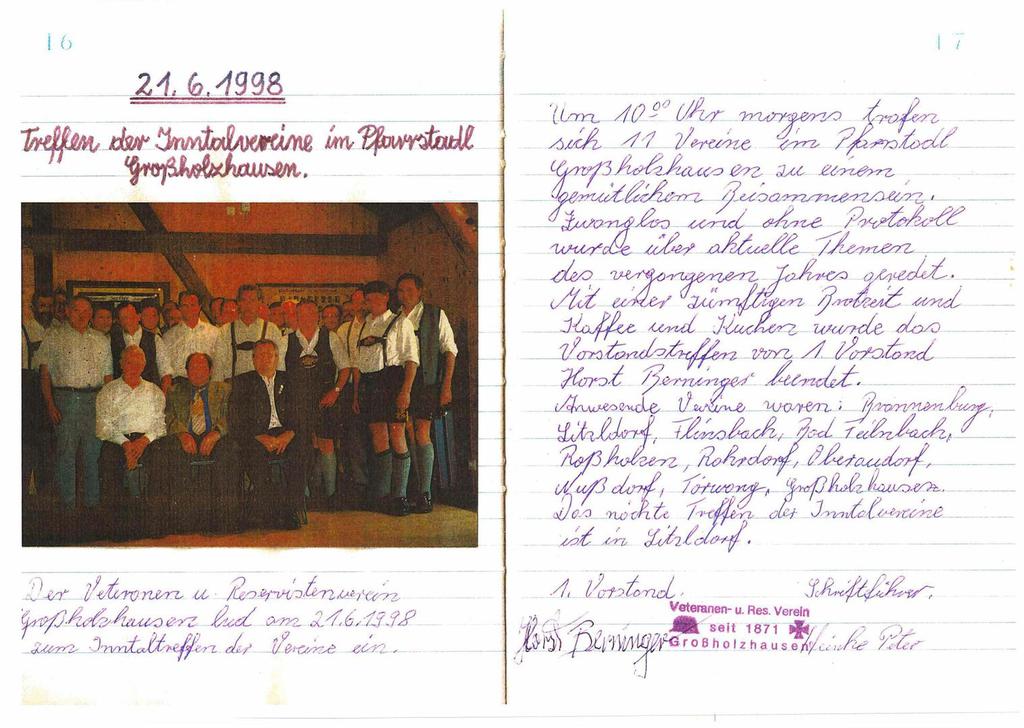 16
21.6.1998
Treffen der Inntalvereine im Pfarrstadl
Großholzhausen.
Der Veteronen u. Reservistenverein
Großholzhausen lud am 21.6.1998
zum Inntaltreffen der Vereine ein.
17
Um 10⁰⁰ Uhr morgens trafen
sich 11 Vereine im Pfarrstodl
Großholzhausen zu einem
gemütlichem Beisammensein.
Zwanglos und ohne Protokoll
wurde über aktuelle Themen
des vergangenen Jahres geredet.
Mit einer zümftigen Brotzeit und
Kaffee und Kuchen wurde das
Vorstandstreffen von 1. Vorstand
Horst Berninger beendet.
Anwesende Vereine waren: Brannenburg,
Litzldorf, Flinsbach, Bad Feilnbach,
Roßholzen, Rohrdorf, Oberaudorf,
Nußdorf, Törwang, Großholzhausen.
Das nächte Treffen der Inntalvereine
ist in Litzldorf.
1. Vorstand. Schriftführer.
Horst Berninger
Veteranen- u. Res. Verein
seit 1871
Großholzhausen
Peter